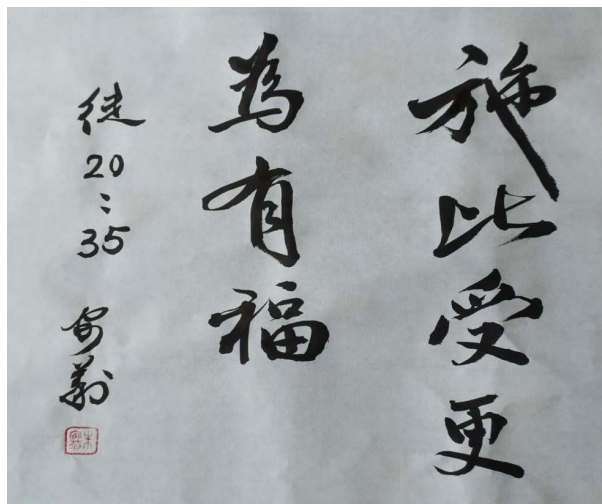 施比受更
為有福
徒20:35